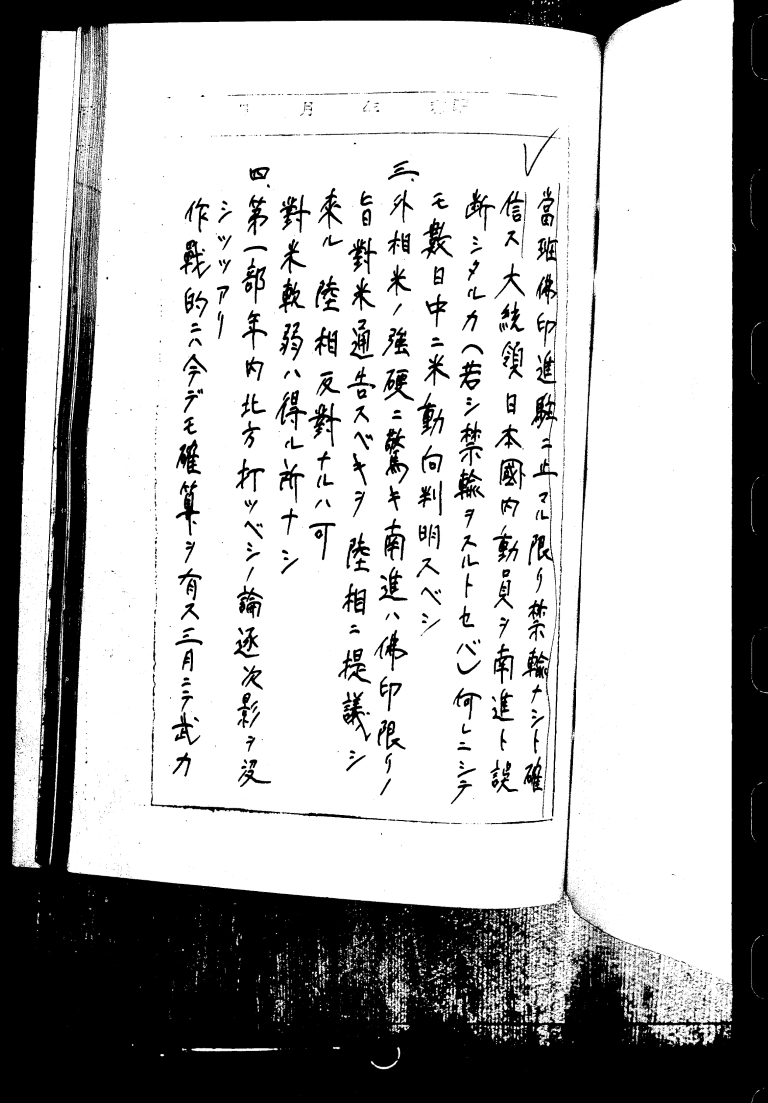 月 年
當班佛印進駐ニ止マル限リ禁輸ナシト確
信ス大統領日本國内動員ヲ南進ト誤
断シタルカ（若シ禁輸ヲスルトセバ）何レニシテ
モ數日中ニ米動向判明スベシ
三、外相米ノ強硬ニ驚キ南進ハ佛印限リノ
旨對米通告スベキヲ陸相ニ提議シ
來ル 陸相反對ナルハ可
對米軟弱ハ得ル所ナシ
四、第一部年内北方打ツベシノ論逐次影ヲ没
シツツアリ
作戰的ニハ今デモ確算ヲ有ス三月ニテ武力